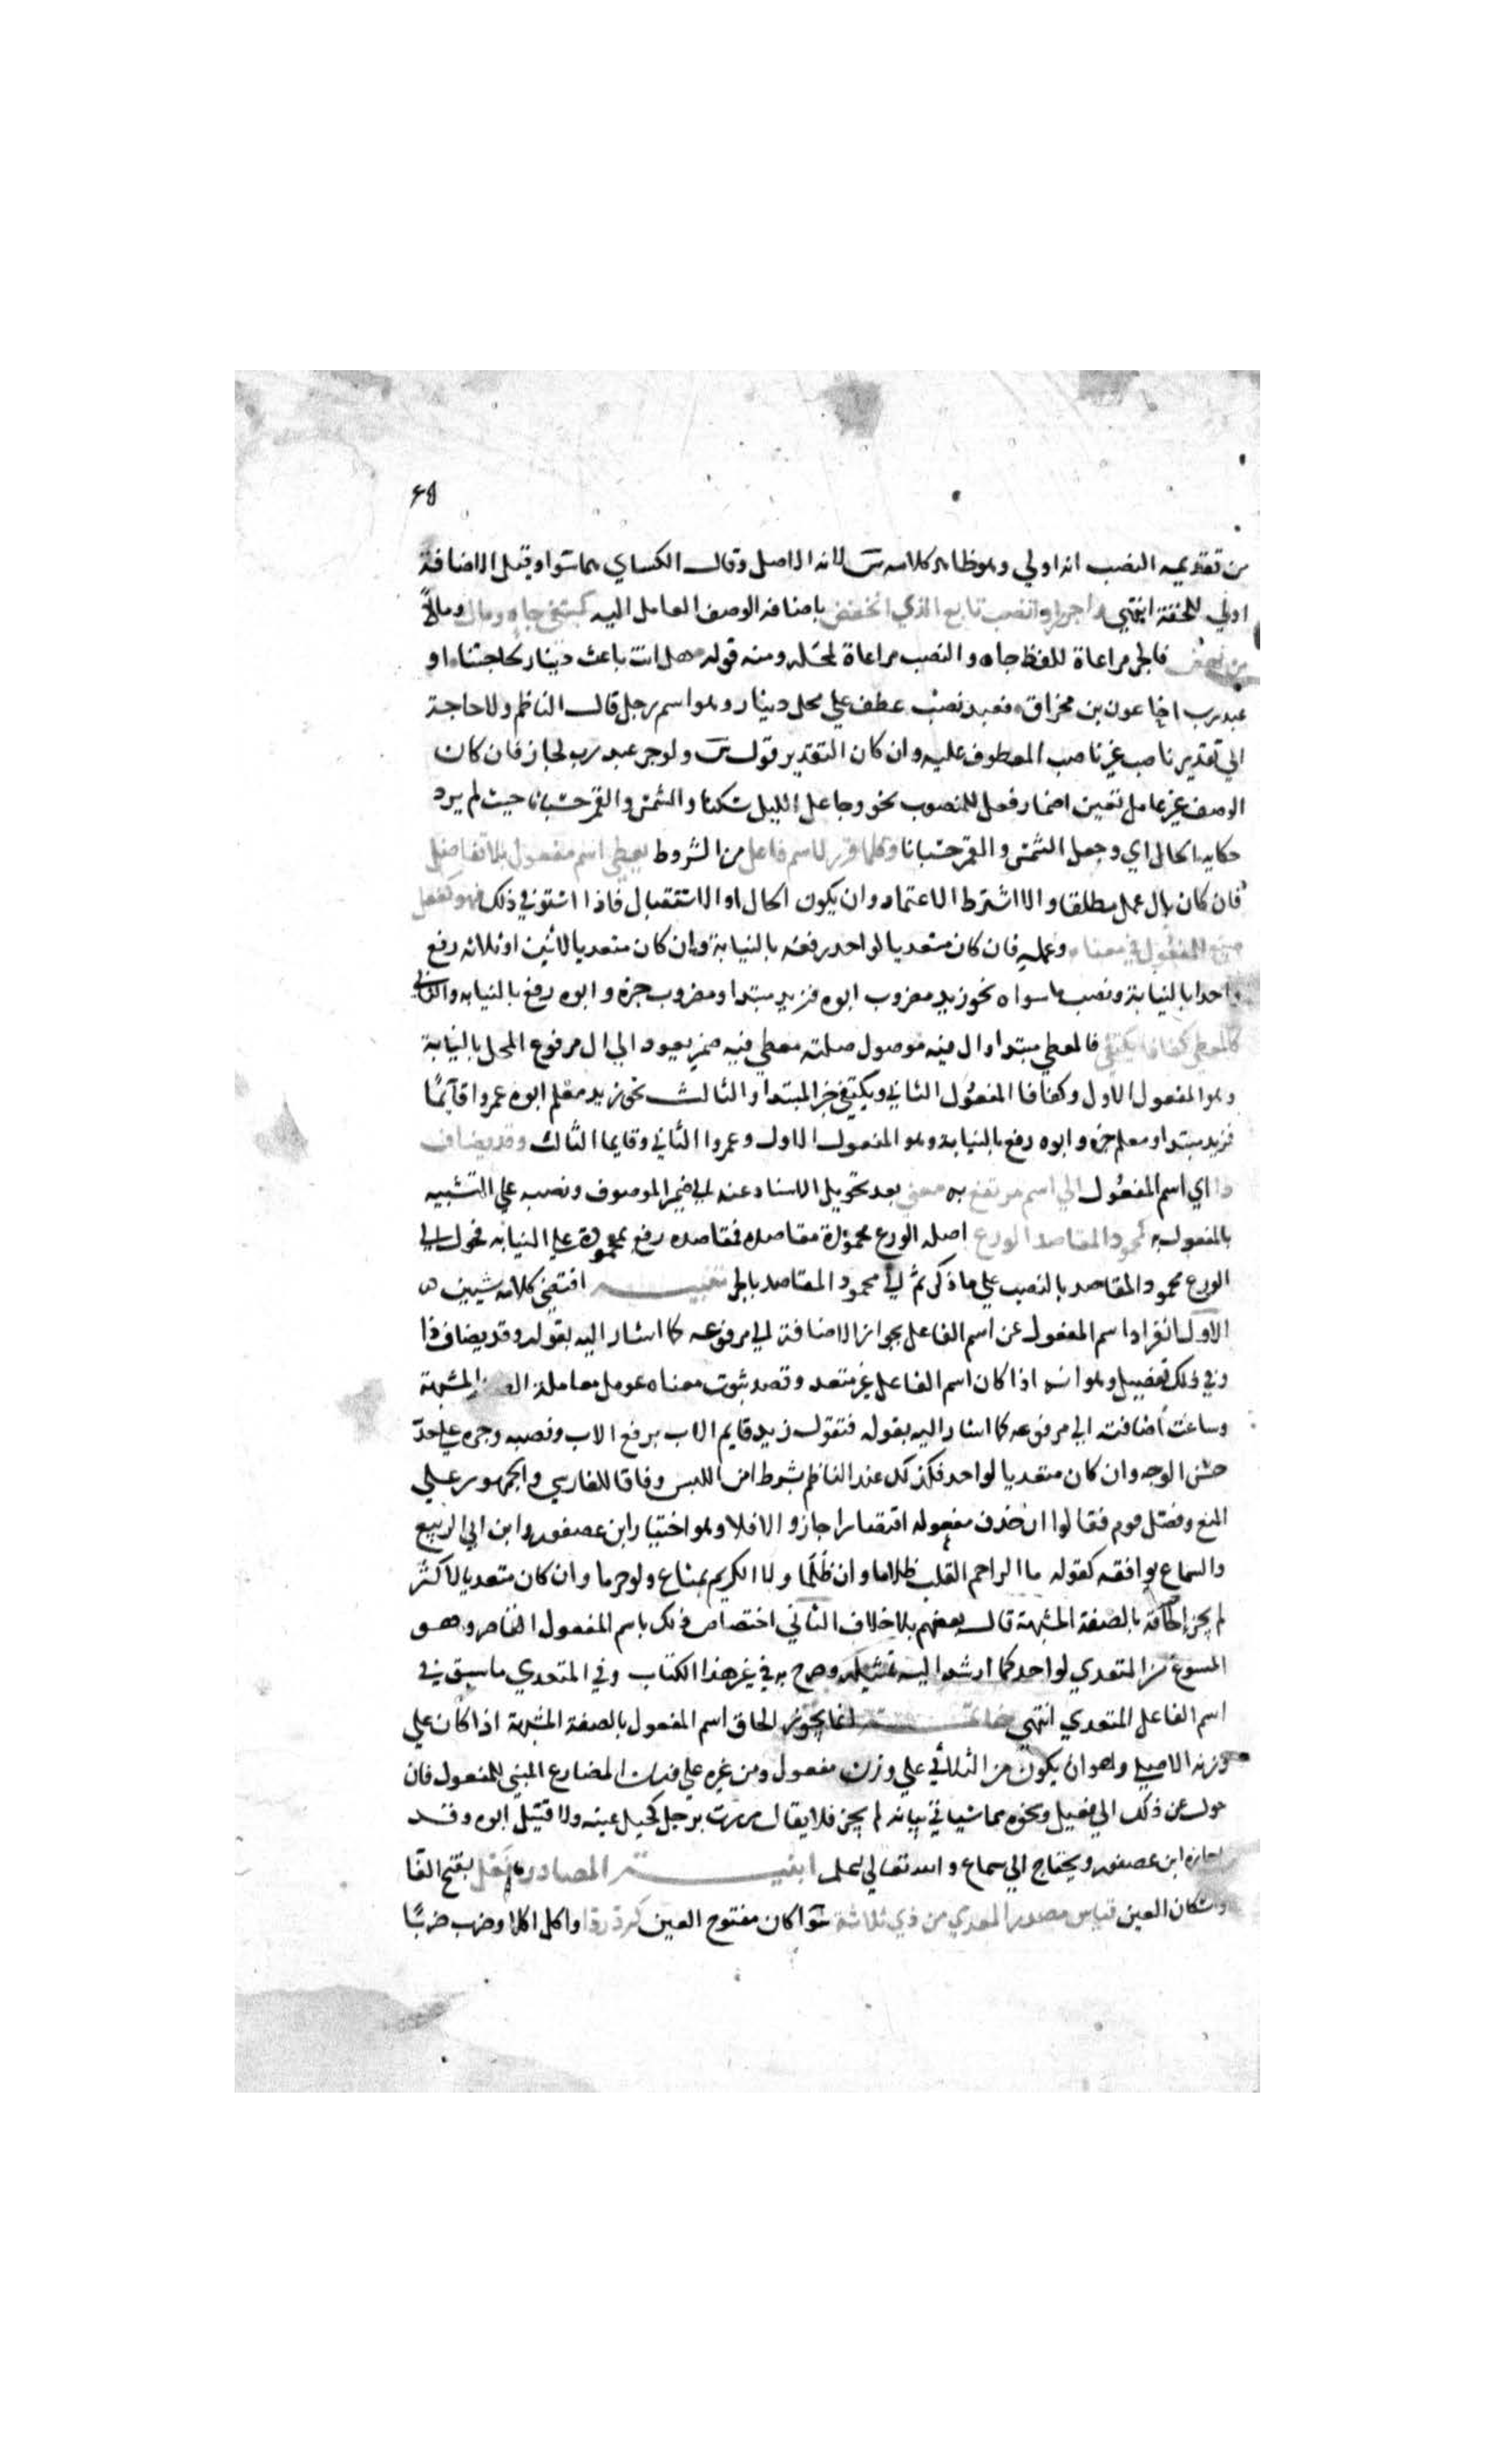 ٤٩
من تقديمه النصب انه اولي وهو ظاهر كلام س لانه الاصل وقال الكساي هما سوا وقيل الاضافة
اولي للخفة انتهي واجرر او انصب تابع الذي انخفض باضافة الوصف العامل اليه كمبتغي جاه ومال ومالاً
من نهض فالجر مراعاة للفظ جاه والنصب مراعاة لمحله ومنه قوله هل انت باعث دينار لحاجتنا او
عبد رب اخا عون بن مخراق فعبد نصب عطف علي محل دينار وهو اسم رجل قال الناظم ولا حاجة
الي تقدير ناصب غير ناصب المعطوف عليه وان كان التقدير قول س ولو جر عبد رب لجاز فان كان
الوصف غير عامل تعين اضمار فعل للمنصوب نحو وجاعل الليل سكنا والشمس والقمر حسبانا حيث لم يرد
حكاية الحال اي وجعل الشمس والقمر حسبانا وكلما قرر لاسم فاعل من الشروط يعطي اسم مفعول بلا تفاضل
فان كان بال عمل مطلقا والا اشترط الاعتماد وان يكون الحال او الاستقبال فاذا استوفي ذلك فهو كفعل
صيغ للمفعول في معناه وعمله فان كان متعديا لواحد رفعه بالنيابة وان كان متعديا لاثنين او ثلاثه رفع
واحدا بالنيابة ونصب ما سواه نحو زيد مضروب ابوه فزيد مبتدا ومضروب خبره وابوه رفع بالنيابه والثاني
كالمعطي كفافا يكتفي فالمعطي مبتدا وال فيه موصول صلته معطي فيه ضمير يعود الي ال مرفوع المحل بالنيابة
وهو المفعول الاول وكفافا المفعول الثاني ويكتفي خبر المبتدا والثالث نحو زيد معلم ابوه عمروا قآيمًا
فزيد مبتدا ومعلم خبره وابوه رفع بالنيابة وهو المفعول الاول وعمروا الثاني وقايما الثالث وقد يضاف
ذا اي اسم المفعول الي اسم مرتفع به معني بعد تحويل الاسناد عنه الي ضمير الموصوف ونصبه علي التشبيه
بالمفعول به كمحمود المقاصد الورع اصله الورع محمودة مقاصده فمقاصده رفع بمحمودة علي النيابه فحول الي
الورع محمود المقاصد بالنصب علي ما ذكر ثم الي محمود المقاصد بالجر تنبيه اقتضي كلامه شيين
الاول انفراد اسم المفعول عن اسم الفاعل بجواز الاضافة الي مرفوعه كما اشار اليه بقوله وقد يضاف ذا
وفي ذلك تفصيل وهو انه اذا كان اسم الفاعل غير متعد وقصد ثبوت معناه عومل معاملة الصفة المشبهة
وساغت اضافته الي مرفوعه كما اشار اليه بقوله فتقول زيد قايم الاب برفع الاب ونصبه وجره علي حد
حسن الوجه وان كان متعديا لواحد فكذلك عند الناظم بشرط امن اللبس وفاقا للفارسي والجمهور علي
المنع وفصل قوم فقالوا ان حذف مفعوله اقتصارا جاز والا فلا وهو اختيار ابن عصفور وابن ابي الربيع
والسماع يوافقه كقوله ما الراحم القلب ظلاما وان ظُلِمَا ولا الكريم بمناع ولو حرما وان كان متعديا لاكثر
لم يجز الحاقه بالصفة المشبهة قال بعضهم بلا خلاف الثاني اختصاص ذلك باسم المفعول القاصر وهو
المصوغ من المتعدي لواحد كما ارشد اليه تمثيله وصرح به في غير هذا الكتاب وفي المتعدي ما سبق في
اسم الفاعل المتعدي انتهي خاتمة انما يجوز الحاق اسم المفعول بالصفة المشبهة اذا كان علي
وزنه الاصلي وهو ان يكون من الثلاثي علي وزن مفعول ومن غيره علي وزن المضارع المبني للمفعول فان
حول عن ذلك الي فعيل ونحوه مما سياتي بيانه لم يجز فلا يقال مررت برجل كحيل عينه ولا قتيل ابوه وقد
اجازه ابن عصفور ويحتاج الي سماع والله تعالي اعلم ابنية المصادر فَعْل بفتح الفا
واسكان العين قياس مصدر المعدي من ذي ثلاثة سوا كان مفتوح العين كرد ردا واكل اكلا وضرب ضربًا